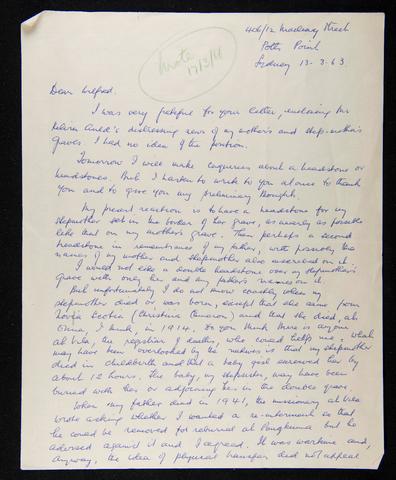 406/12 Macleay Street
Potts Point
Sydney 13-3-63
Wrote
17/3/4
Dear Wilfred,
I was very grateful for your letter, enclosing Mr
Auld's distressing news of my mother's and step-mother's
graves. I had no idea of the position.
Tomorrow I will make enquiries about a headstone or
headstones. But I hasten to write to you at once to thank
you and to give you my preliminary thoughts.
My present reaction is to have a headstone for my
stepmother set in the border of her grave, as nearly as possible
like that on my mother's grave. Then perhaps a second
headstone in remembrance of my father, with possibly the
names of my mother and stepmother also inscribed on it.
I would not like a double headstone over my stepmother's
grave with only her and my father's names on it.
But unfortunately I do not know exactly when my
stepmother died or was born, except that she came from
Nova Scotia (Christina Cameron) and that she died, at
I think, in 1914. Do you think there is anyone
at Vila, the registrar of deaths, who could help me, what
may have been overlooked by the natives is that my stepmother
died in childbirth and that a baby girl survived her by
about 12 hours. The baby, my stepsister, may have been
buried with her or adjoining her in the double grave
When my father died in 1941, the missionary at Vila
wrote asking whether I wanted a re-interment so that
he could be removed for reburial at Pangkumu but he
advised against it and I agreed. It was wartime and,
anyway, the idea of physical transfer did not appeal